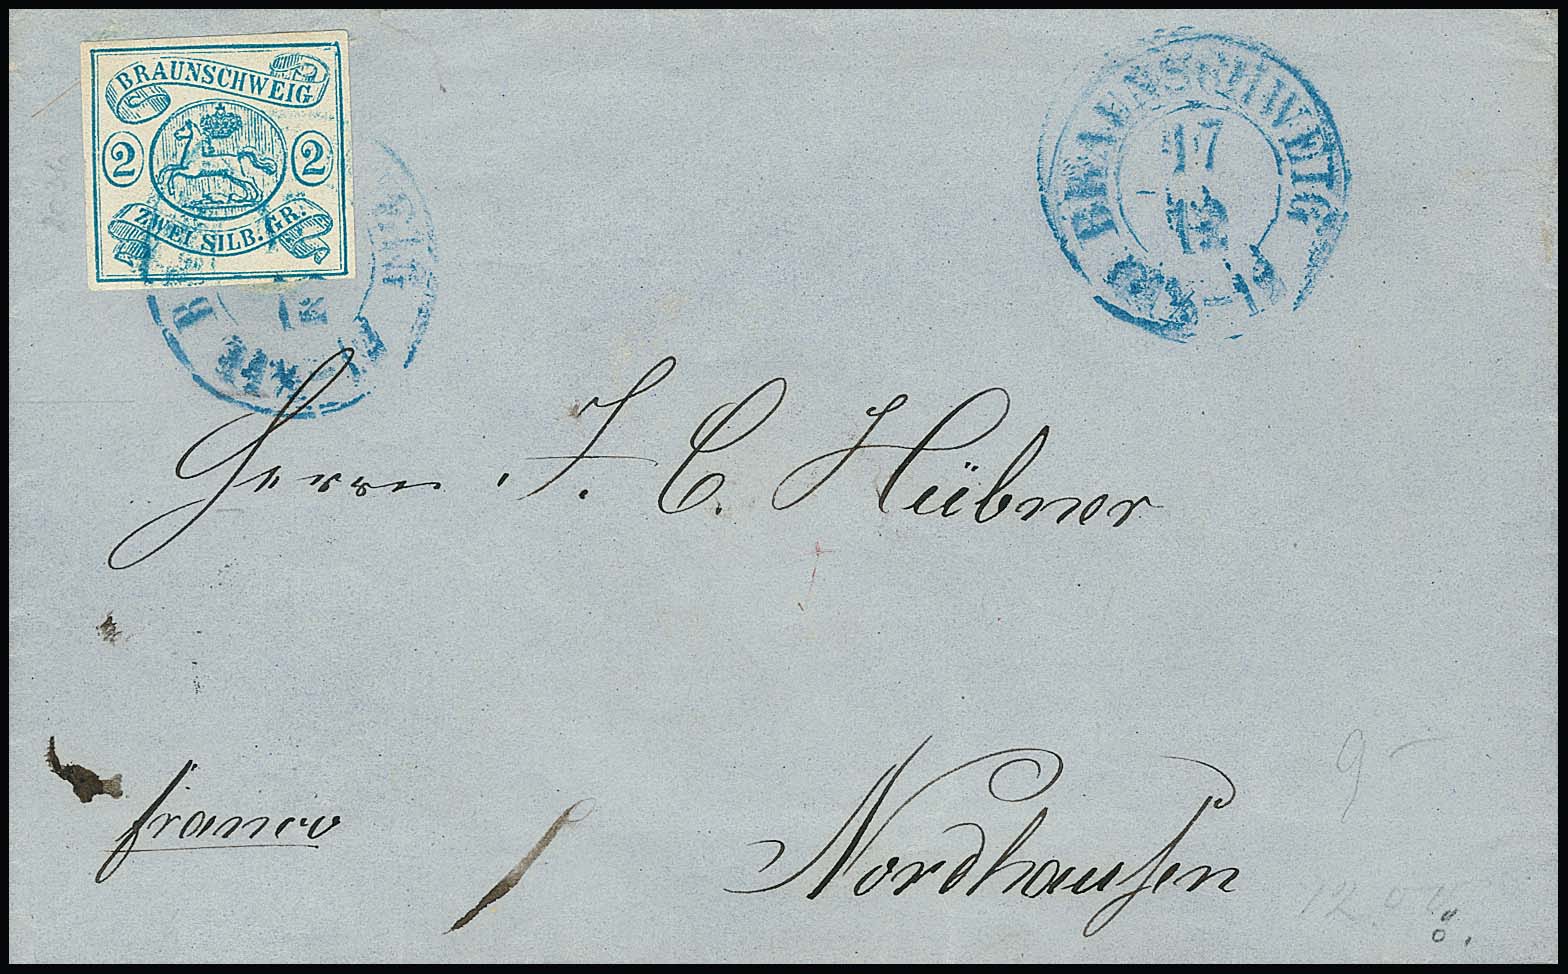 BRAUNSCHWEIG
2 2
ZWEI SILB. GR.
BRAUNSCHWEIG
17
12
Herrn J. C. Hübner
franco
Nordhausen
9